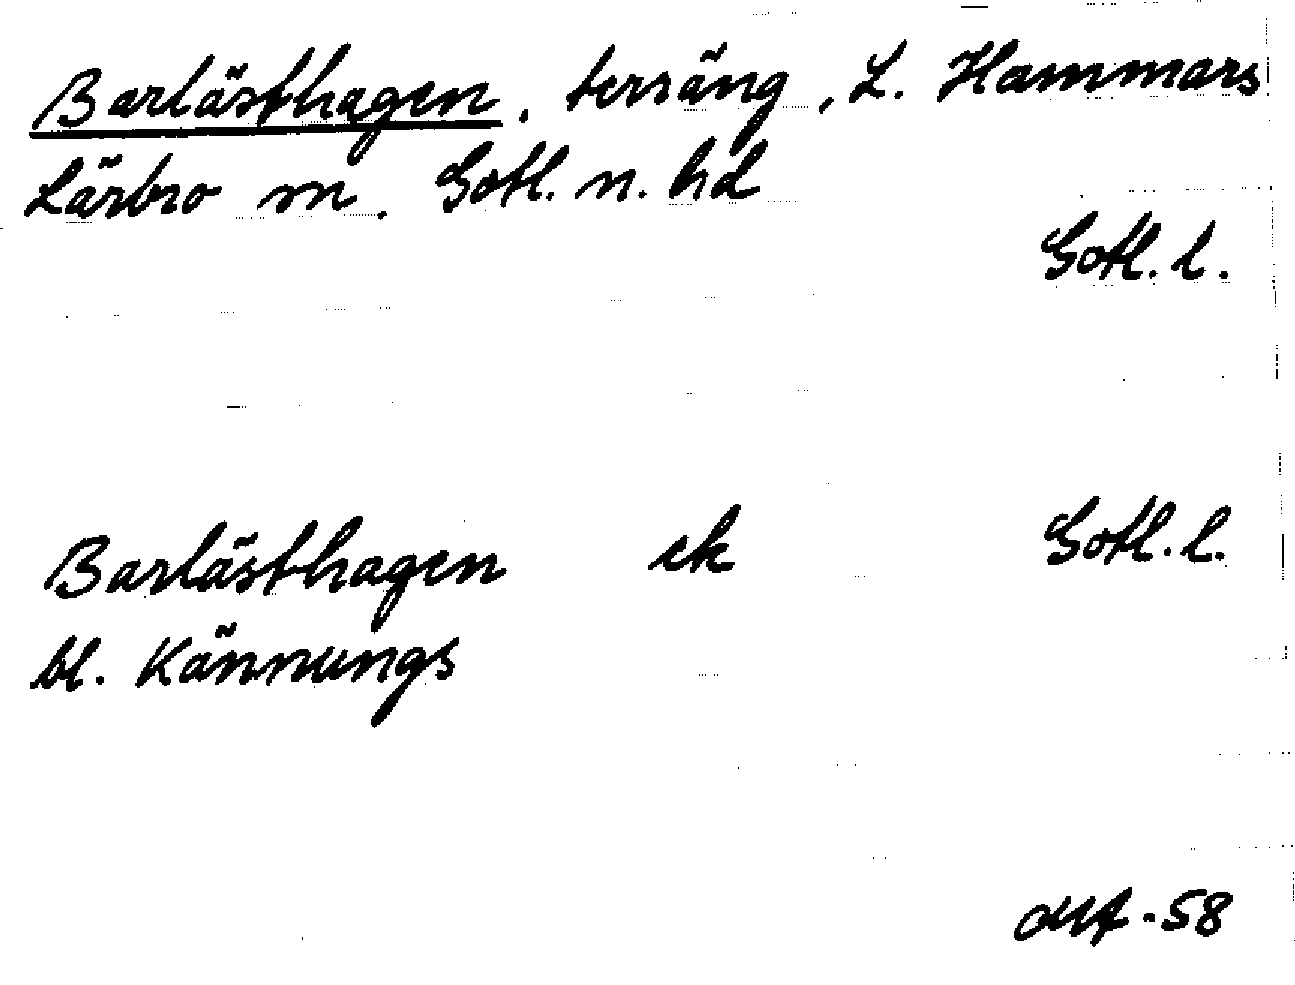 Barlästhagen, terräng, L. Hammars
Lärbro sn. Gotl. n. hd
Gotl. l.
Barlästhagen ek Gotl. l.
bl. Kännungs
-58